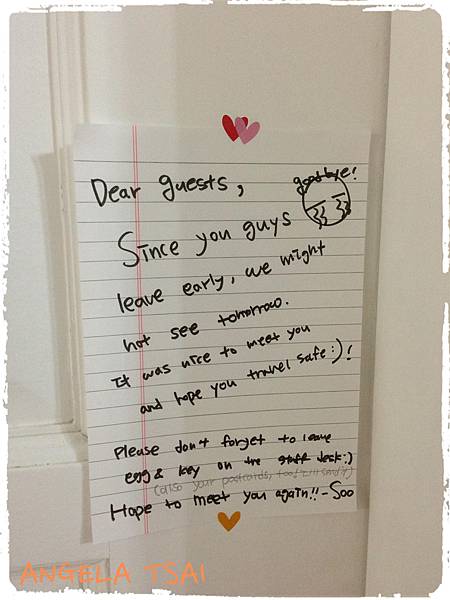 Dear guests,
goodbye!
Since you guys
leave early, we might
not see tomorrow.
It was nice to meet you
and hope you travel safe :)!
Please don't forget to leave
egg & key on the staff desk :)
(also your postcards, too! I'll send it)
Hope to meet you again!! - Soo
ANGELA TSAI